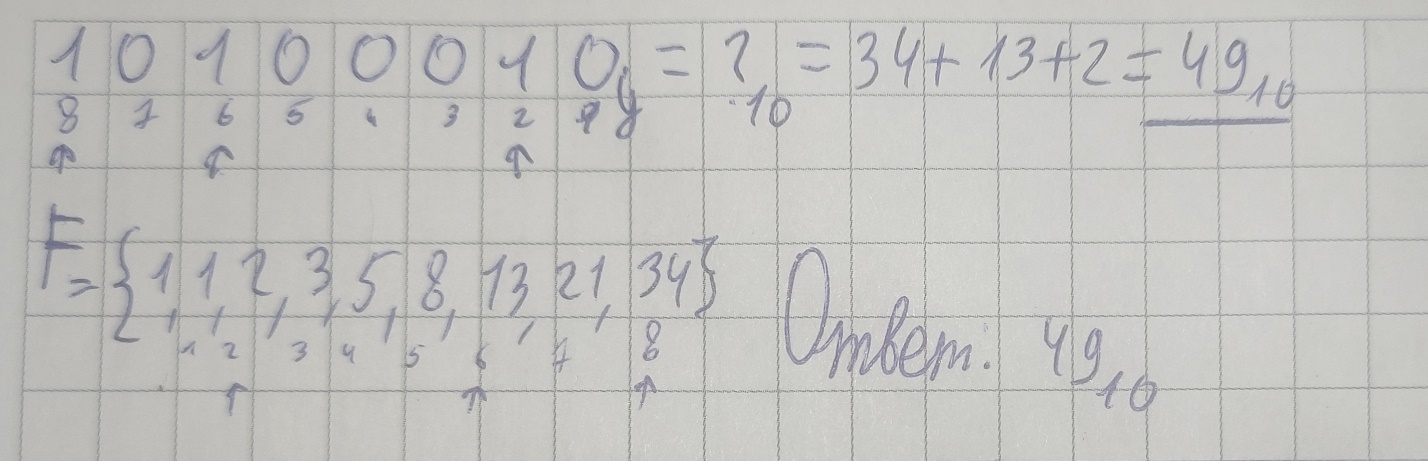 10100010ȳ = ?10 = 34+13+2=4910
8 7 6 5 4 3 2 1
↑ ↑ ↑
F={1,1,2,3,5,8,13,21,34}
1 2 3 4 5 6 7 8
↑ ↑ ↑
Ответ: 4910